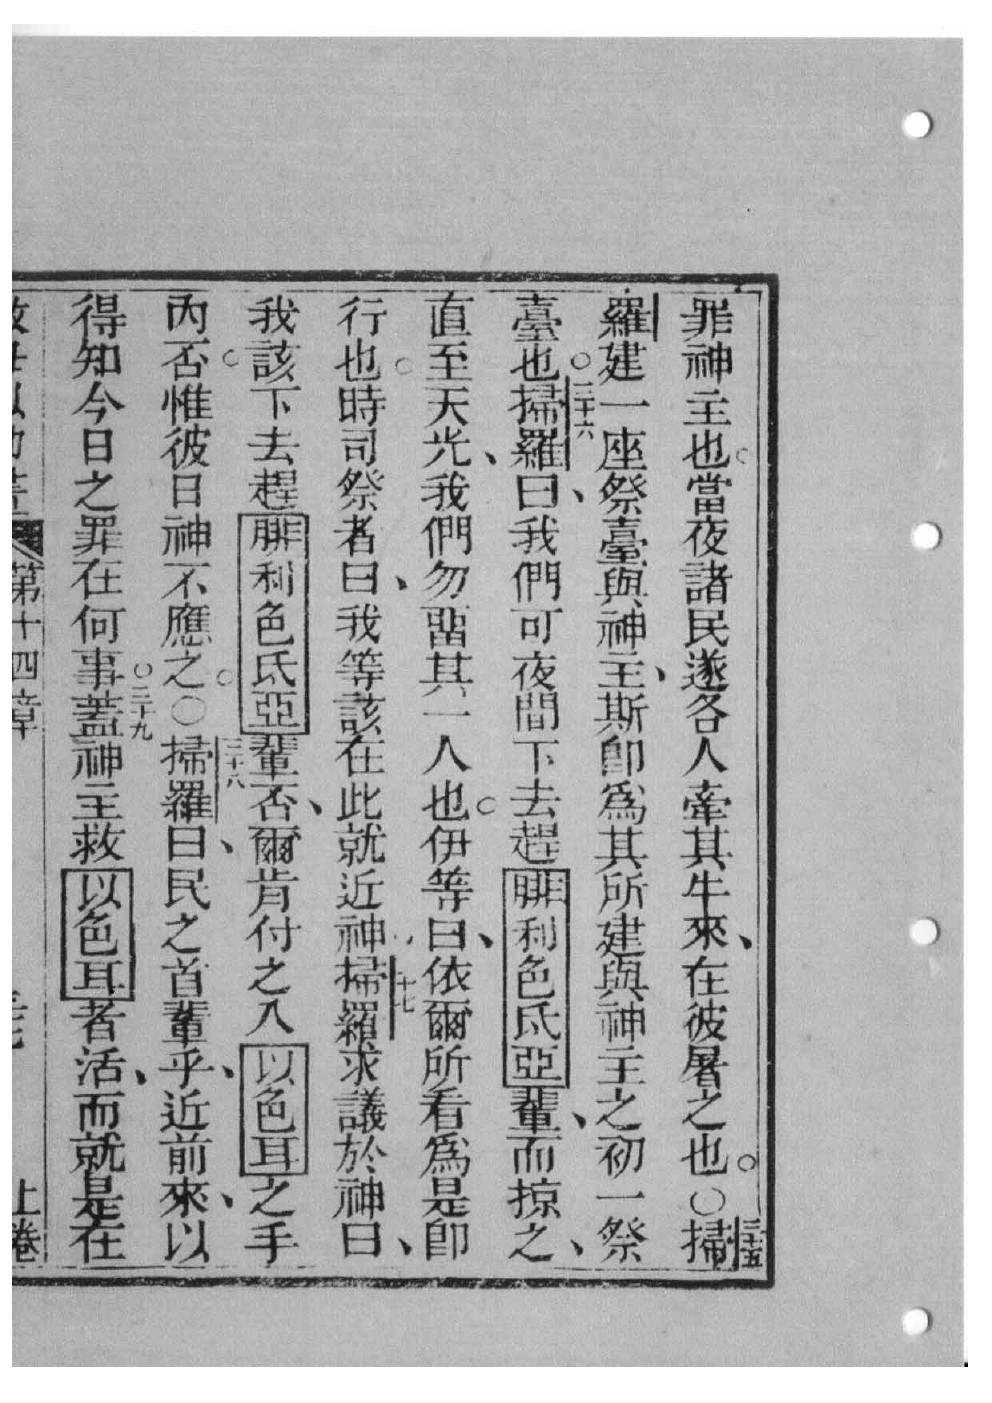 罪神主也。當夜諸民遂各人牽其牛來、在彼屠之也。〇三十五掃
羅建一座祭臺與神主、斯卽爲其所建與神主之初一祭
臺也。三十六掃羅曰、我們可夜間下去趕腓利色氏亞輩、而掠之、
直至天光、我們勿畱其一人也。伊等曰、依爾所看爲是卽
行也。時司祭者曰、我等該在此就近神。十七掃羅求議於神曰、
我該下去趕腓利色氏亞輩否、爾肯付之入以色耳之手
內否。惟彼日神不應之。〇三十八掃羅曰、民之首輩乎、近前來、以
得知今日之罪在何事。三十九蓋神主救以色耳者活、而就是在
第十四章 上卷